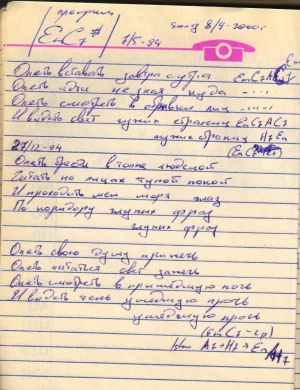 проиграш
EmC7#
7/5-94
song 8/9-2000г
Опять вставать завтра с утра EmC7AC7
Опять идти не зная куда -....
Опять смотреть в обрывки лиц -....
И видеть свет чужих страниц EmC7AC7
чужих страниц H7Em
27/12-94
Опять брести в толпе людской
Читать на лицах тупой покой
И проходить меж моря глаз
По коридору глупых фраз
глупых фраз
Опять свою душу прижечь
Опять пытаться свет зажечь
Опять смотреть в пришедшую ночь
И видеть тень ушедшую прочь
ушедшую прочь
A7+H7→Em